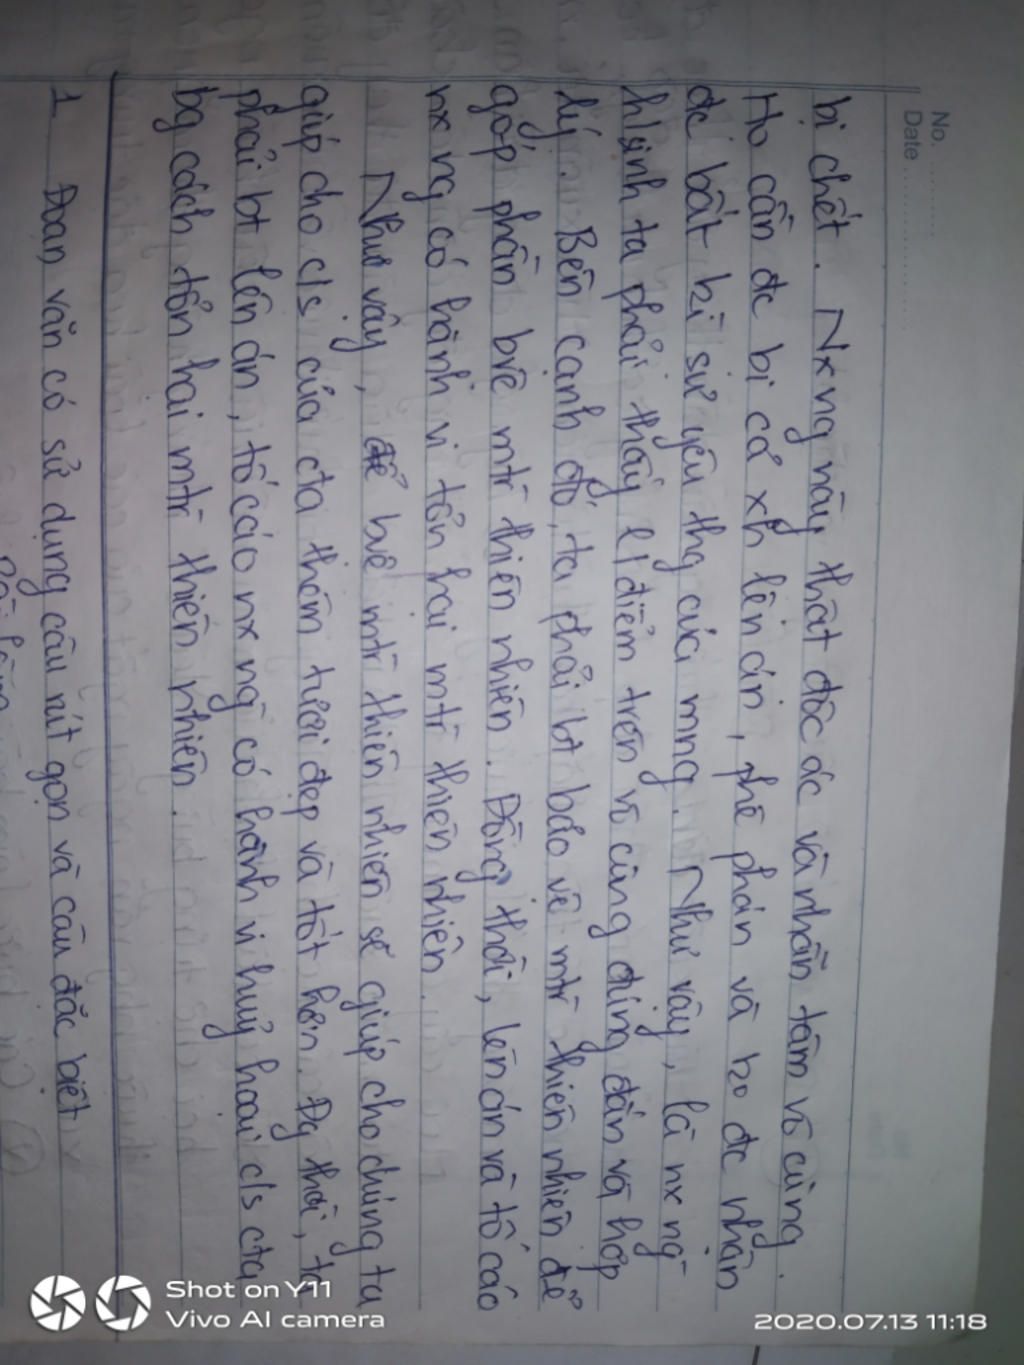 No. ............
Date ....................
bị chết. Nx ng này thật độc ác và nhẫn tâm vô cùng.
Họ cần đc bị cả xh lên án, phê phán và ko đc nhận
đc bất kì sự yêu thg của mng. Như vậy, là nx ng
h/sinh ta phải thấy q/điểm trên vô cùng đúng đắn và hợp
lý. Bên cạnh đó, ta phải bt bảo vệ mtr thiên nhiên để
góp phần bvệ mtr thiên nhiên. Đồng thời, lên án và tố cáo
nx ng có hành vi tổn hại mtr thiên nhiên.
Như vậy, để bvệ mtr thiên nhiên sẽ giúp cho chúng ta
giúp cho c/s của cta thêm tươi đẹp và tốt hơn. Đg thời, ta
phải bt lên án, tố cáo nx ng có hành vi huỷ hoại c/s cta
bg cách tổn hại mtr thiên nhiên.
1 Đoạn văn có sử dụng câu rút gọn và câu đặc biệt
Shot on Y11
Vivo AI camera
2020.07.13 11:18